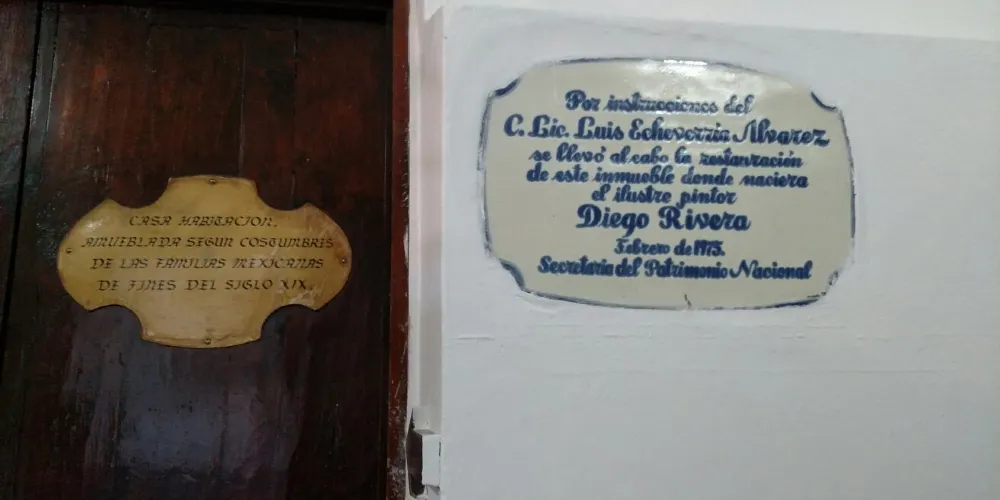 CASA HABITACION,
AMUEBLADA SEGUN COSTUMBRES
DE LAS FAMILIAS MEXICANAS
DE FINES DEL SIGLO XIX.
Por instrucciones del
C. Lic. Luis Echeverria Alvarez
se llevó al cabo la restauración
de este inmueble donde naciera
el ilustre pintor
Diego Rivera
Febrero de 1975.
Secretaria del Patrimonio Nacional